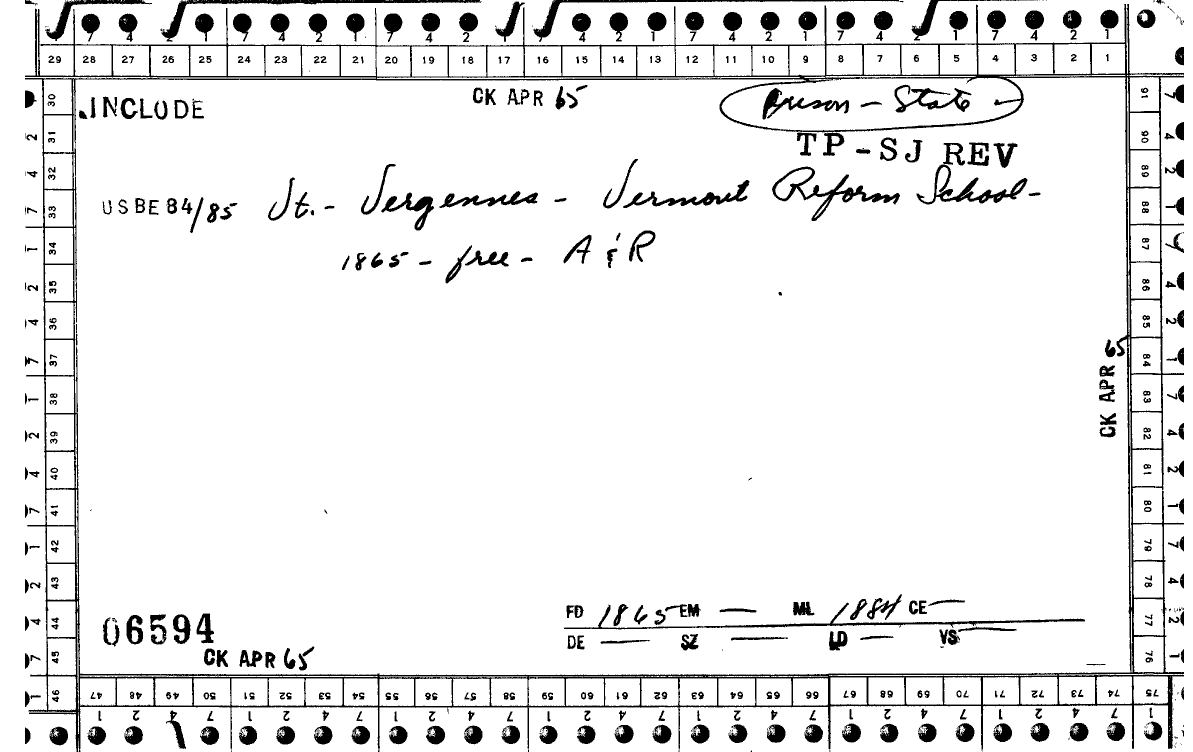 7 4 2 1 7 4 2 1 7 4 2 1 7 4 2 1 7 4 2 1 7 4 2 1 7 4 2 1
29 28 27 26 25 24 23 22 21 20 19 18 17 16 15 14 13 12 11 10 9 8 7 6 5 4 3 2 1
INCLUDE
CK APR 65
Prison - State -
TP-SJ REV
USBE 84/85 Vt. - Vergennes - Vermont Reform School -
1865 - free - A & R
CK APR 65
FD 1865 EM — ML 1884 CE —
DE — SZ — LD — VS —
06594
CK APR 65
30 31 32 33 34 35 36 37 38 39 40 41 42 43 44 45 46
2 4 7 1 2 4 7 1 2 4 7 1 2 4 7 1
91 90 89 88 87 86 85 84 83 82 81 80 79 78 77 76 75
7 4 2 1 7 4 2 1 7 4 2 1 7 4 2 1
47 48 49 50 51 52 53 54 55 56 57 58 59 60 61 62 63 64 65 66 67 68 69 70 71 72 73 74 75
1 2 4 7 1 2 4 7 1 2 4 7 1 2 4 7 1 2 4 7 1 2 4 7 1 2 4 7 1